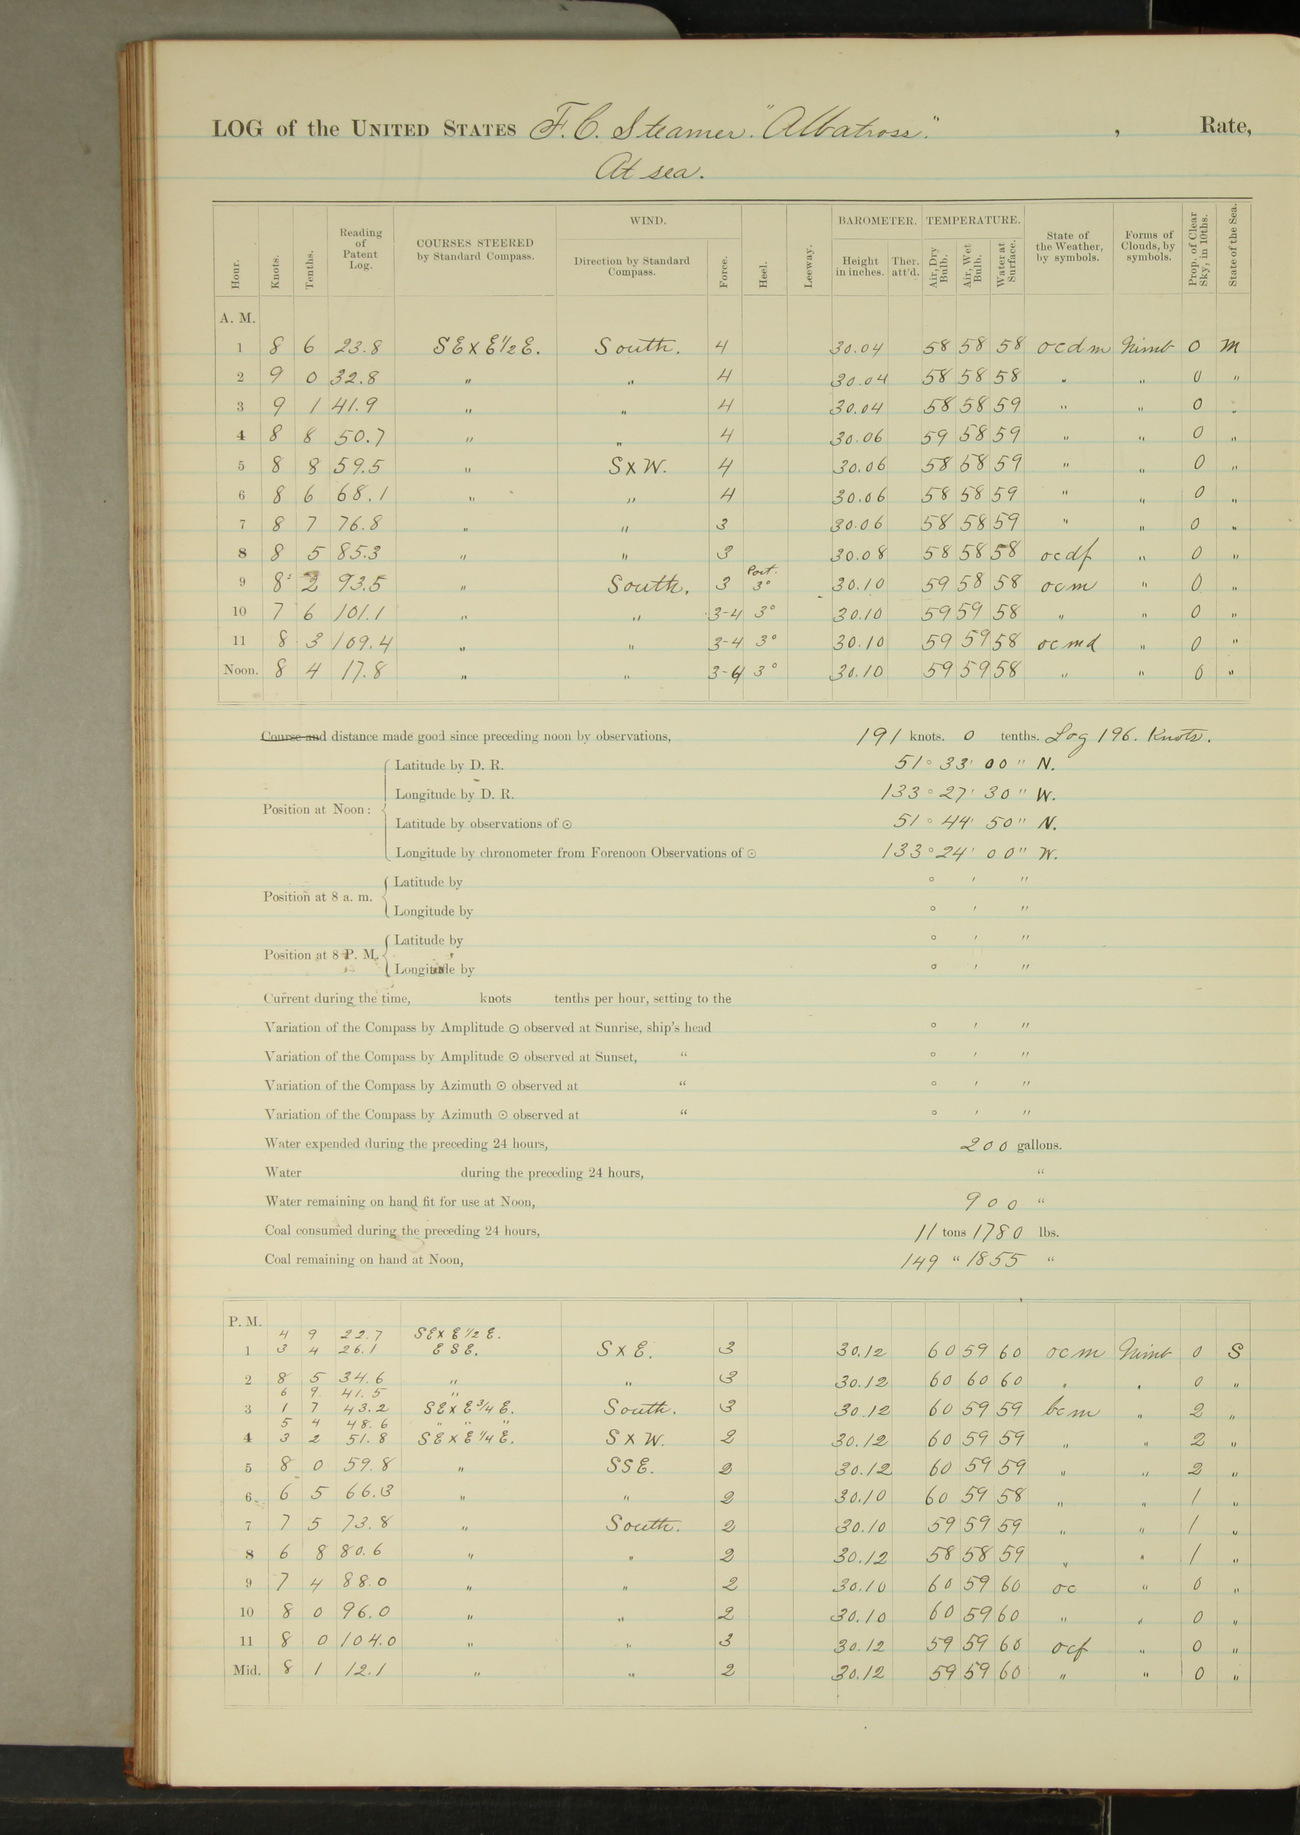 LOG of the UNITED STATES F. C. Steamer. "Albatross". , Rate,
At sea.
Hour. Knots. Tenths. Reading of Patent Log. COURSES STEERED by Standard Compass. WIND. Direction by Standard Compass. Force. Heel. Leeway. BAROMETER. Height in inches. Ther. att'd. TEMPERATURE. Air, Dry Bulb. Air, Wet Bulb. Water at Surface. State of the Weather, by symbols. Forms of Clouds, by symbols. Prop. of Clear Sky, in 10ths. State of the Sea.
A. M.
1 8 6 23.8 SE x E 1/2 E. South. 4 30.04 58 58 58 ocdm Nimb 0 M
2 9 0 32.8 " " 4 30.04 58 58 58 " " 0 "
3 9 1 41.9 " " 4 30.04 58 58 59 " " 0 "
4 8 8 50.7 " " 4 30.06 59 58 59 " " 0 "
5 8 8 59.5 " S x W. 4 30.06 58 58 59 " " 0 "
6 8 6 68.1 " " 4 30.06 58 58 59 " " 0 "
7 8 7 76.8 " " 3 30.06 58 58 59 " " 0 "
8 8 5 85.3 " " 3 30.08 58 58 58 ocdf " 0 "
9 8 2 93.5 " South. 3 Port. 3° 30.10 59 58 58 ocm " 0 "
10 7 6 101.1 " " 3-4 3° 30.10 59 59 58 " " 0 "
11 8 3 109.4 " " 3-4 3° 30.10 59 59 58 ocmd " 0 "
Noon. 8 4 17.8 " " 3-4 3° 30.10 59 59 58 " " 0 "
Course and distance made good since preceding noon by observations, 191 knots. 0 tenths. Log 196. Knots.
Latitude by D. R. 51° 33' 00" N.
Longitude by D. R. 133° 27' 30" W.
Position at Noon:
Latitude by observations of ☉ 51° 44' 50" N.
Longitude by chronometer from Forenoon Observations of ☉ 133° 24' 00" W.
Latitude by ° ' "
Position at 8 a. m.
Longitude by ° ' "
Latitude by ° ' "
Position at 8 P. M.
Longitude by ° ' "
Current during the time, knots tenths per hour, setting to the
Variation of the Compass by Amplitude ☉ observed at Sunrise, ship's head ° ' "
Variation of the Compass by Amplitude ☉ observed at Sunset, " ° ' "
Variation of the Compass by Azimuth ☉ observed at " ° ' "
Variation of the Compass by Azimuth ☉ observed at " ° ' "
Water expended during the preceding 24 hours, 200 gallons.
Water during the preceding 24 hours, "
Water remaining on hand fit for use at Noon, 900 "
Coal consumed during the preceding 24 hours, 11 tons 1780 lbs.
Coal remaining on hand at Noon, 149 " 1855 "
P. M.
4 9 22.7 SE x E 1/2 E.
1 3 4 26.1 ESE. S x E. 3 30.12 60 59 60 ocm Nimb 0 S
2 8 5 34.6 " " 3 30.12 60 60 60 " " 0 "
6 9 41.5 "
3 1 7 43.2 SE x E 3/4 E. South. 3 30.12 60 59 59 bcm " 2 "
5 4 48.6 " " "
4 3 2 51.8 SE x E 1/4 E. S x W. 2 30.12 60 59 59 " " 2 "
5 8 0 59.8 " SSE. 2 30.12 60 59 59 " " 2 "
6 6 5 66.3 " " 2 30.10 60 59 58 " " 1 "
7 7 5 73.8 " South. 2 30.10 59 59 59 " " 1 "
8 6 8 80.6 " " 2 30.12 58 58 59 " " 1 "
9 7 4 88.0 " " 2 30.10 60 59 60 oc " 0 "
10 8 0 96.0 " " 2 30.10 60 59 60 " " 0 "
11 8 0 104.0 " " 3 30.12 59 59 60 ocf " 0 "
Mid. 8 1 12.1 " " 2 30.12 59 59 60 " " 0 "